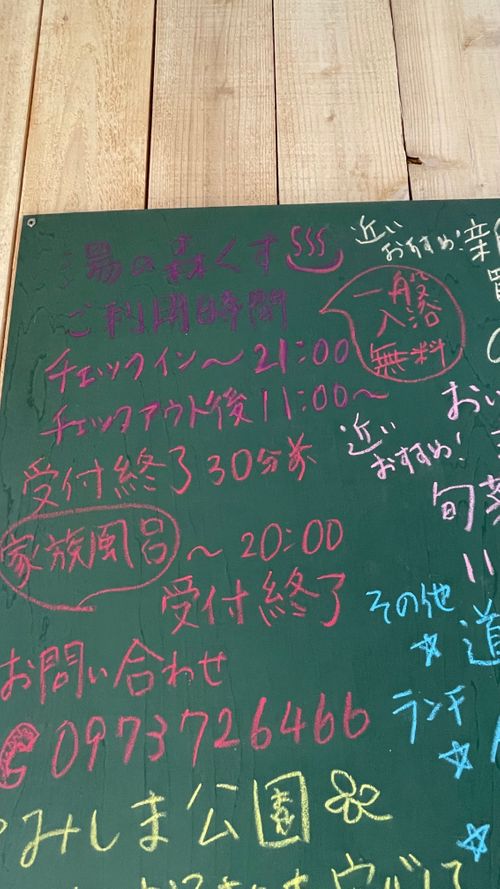 湯の森くす
ご利用時間
一般
入浴
無料
チェックイン〜21:00
チェックアウト後11:00〜
受付終了30分前
家族風呂 〜20:00
受付終了
お問い合わせ
0973726466
みしま公園
近い
おすすめ!
近い
おすすめ!
おい
旬菜
11
その他
道
ランチ